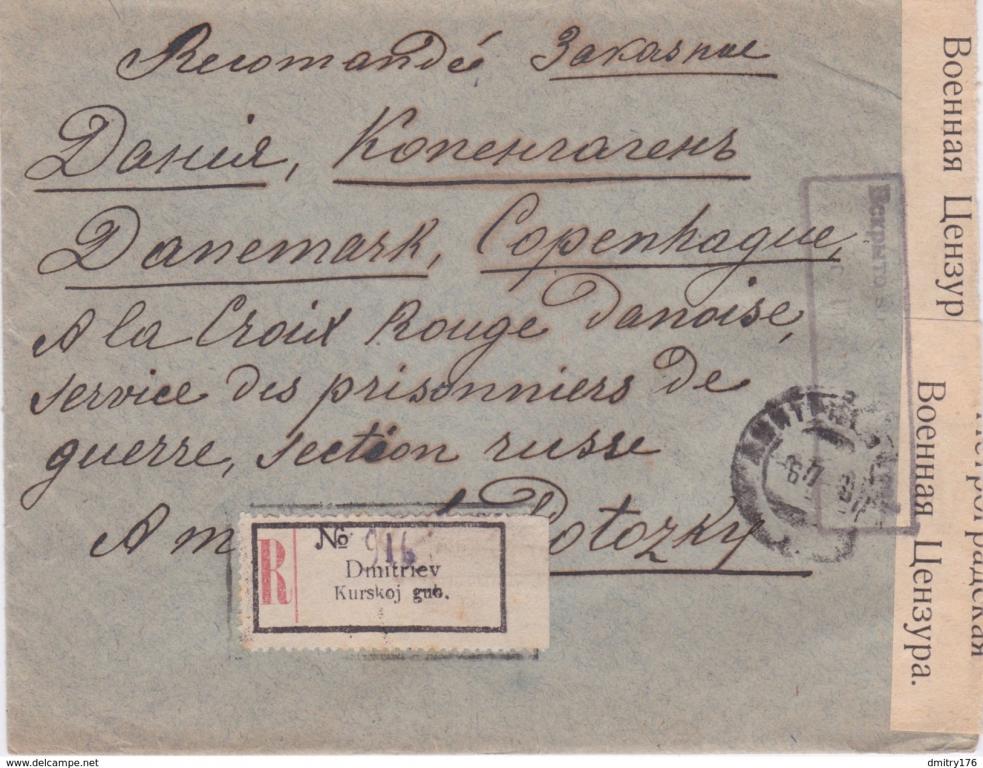 Recomandé Заказное
Данія, Копенгагенъ
Danemark, Copenhague
A la Croix Rouge danoise,
service des prisonniers de
guerre, section russe
A m Potozky
R
№ 916
Dmitriev
Kurskoj gub.
Вскрыто
Военная Цензур
Военная Цензура.
Петроградская
delcampe.net
dmitry176